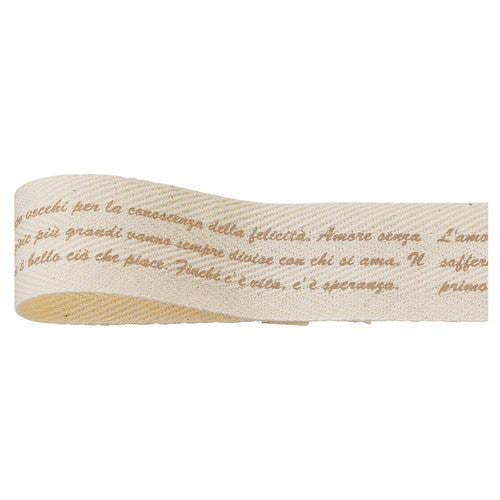 vecchi per la conoscenza della felicità. Amore senza
più grandi vanno sempre divise con chi si ama. Il
è bello ciò che piace. Finchè c'è vita, c'è speranza.
L'amo
soffer
primo